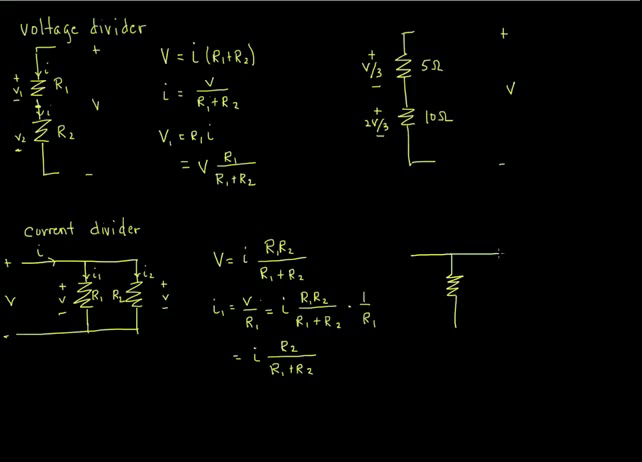 voltage divider
+
i
+
V₁
−
R₁
V
i
V₂
−
R₂
−
V = i (R₁+R₂)
i = V / (R₁+R₂)
V₁ = R₁ i
= V R₁ / (R₁+R₂)
+
+
V/3
−
5Ω
V
+
2V/3
−
10Ω
−
current divider
i
+
i₁
i₂
+
V
−
R₁
R₂
+
V
−
V
−
V = i R₁R₂ / (R₁+R₂)
i₁ = V/R₁ = i R₁R₂ / (R₁+R₂) · 1/R₁
= i R₂ / (R₁+R₂)